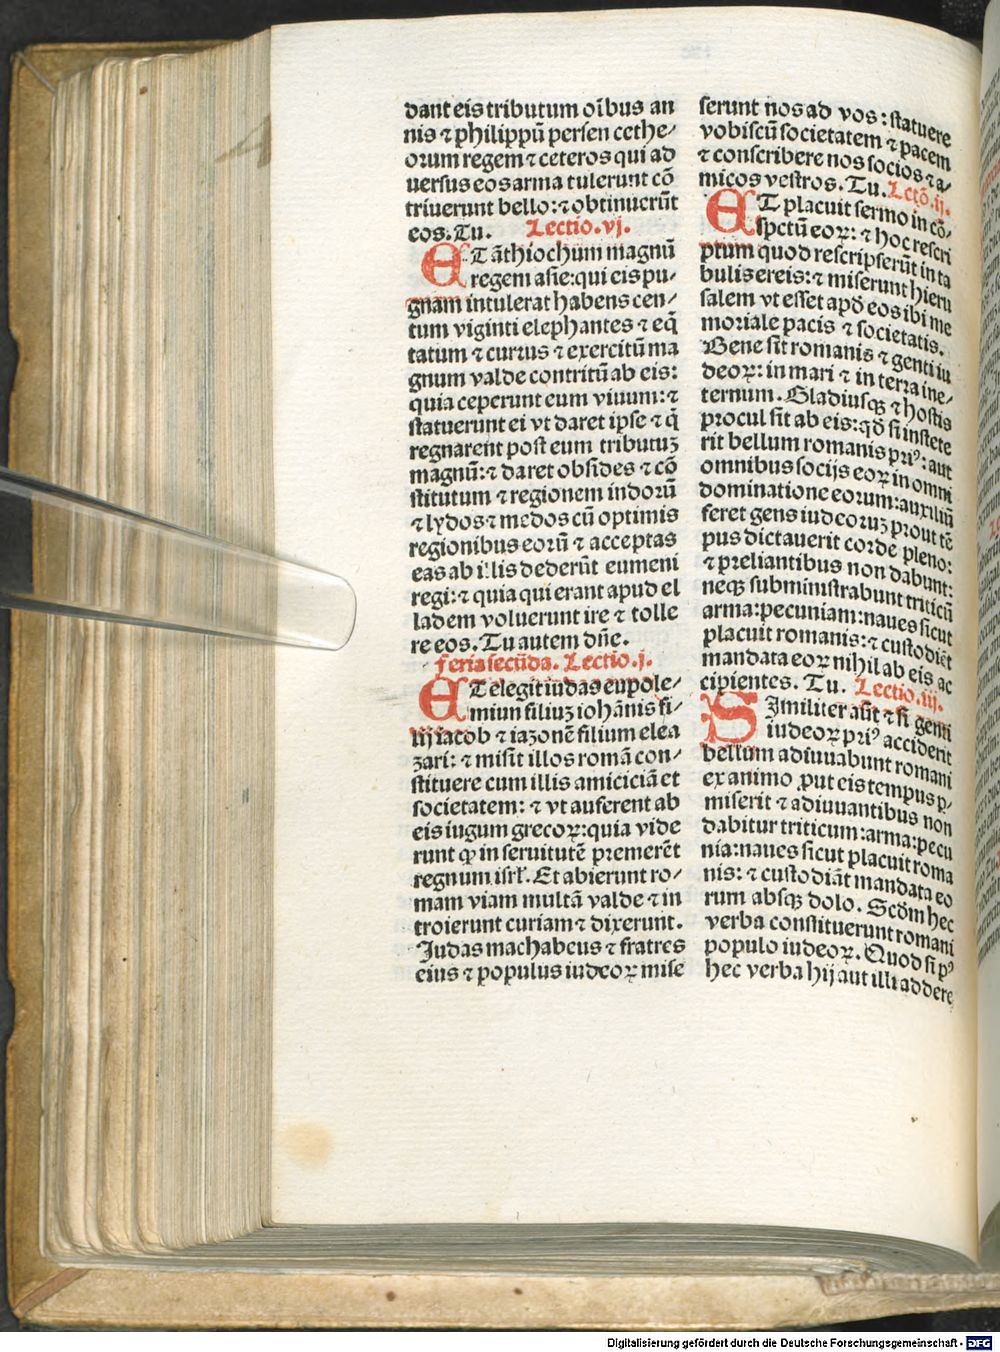 dant eis tributum oībus an
nis ⁊ philippū persen cethe⸗
orum regem ⁊ ceteros qui ad
uersus eos arma tulerunt cō
triuerunt bello: ⁊ obtinuerūt
eos. Tu. Lectio. vj.
ET āthiochum magnū
regem asie: qui eis pu⸗
gnam intulerat habens cen⸗
tum viginti elephantes ⁊ eq̄
tatum ⁊ currus ⁊ exercitū ma
gnum valde contritū ab eis:
quia ceperunt eum viuum: ⁊
statuerunt ei vt daret ipse ⁊ q̄
regnarent post eum tributuꝫ
magnū: ⁊ daret obsides ⁊ cō
stitutum ⁊ regionem indorū
⁊ lydos ⁊ medos cū optimis
regionibus eorū ⁊ acceptas
eas ab illis dederūt eumeni
regi: ⁊ quia qui erant apud el
ladem voluerunt ire ⁊ tolle
re eos. Tu autem dn̄e.
feria secūda. Lectio. j.
ET elegit iudas eupole⸗
miun filiuꝫ iohānis fi⸗
lij iacob ⁊ iazonē filium elea
zari: ⁊ misit illos romā con⸗
stituere cum illis amiciciā et
societatem: ⁊ vt auferent ab
eis iugum grecoꝝ: quia vide
runt ꝙ in seruitutē premerēt
regnum isrł. Et abierunt ro⸗
mam viam multā valde ⁊ in
troierunt curiam ⁊ dixerunt.
Judas machabeus ⁊ fratres
eius ⁊ populus iudeoꝝ mise
serunt nos ad vos: statuere
vobiscū societatem ⁊ pacem
⁊ conscribere nos socios ⁊ a⸗
micos vestros. Tu. Lctō. ij.
ET placuit sermo in cō⸗
spctū eoꝝ: ⁊ hoc rescri
ptum quod rescripserūt in ta
bulis ereis: ⁊ miserunt hieru
salem vt esset apd̄ eos ibi me
moriale pacis ⁊ societatis.
Bene sit romanis ⁊ genti iu
deoꝝ: in mari ⁊ in terra ine⸗
ternum. Gladiusqꝫ ⁊ hostis
procul sit ab eis: qd̄ si instete
rit bellum romanis priꝰ: aut
omnibus socijs eoꝝ in omni
dominatione eorum: auxiliū
feret gens iudeoruꝫ prout tē
pus dictauerit corde pleno:
⁊ preliantibus non dabunt:
neqꝫ subministrabunt triticū
arma: pecuniam: naues sicut
placuit romanis: ⁊ custodiēt
mandata eoꝝ nihil ab eis ac
cipientes. Tu. Lectio. iij.
SImiliter aūt ⁊ si genti
iudeoꝝ priꝰ acciderit
bellum adiuuabunt romani
ex animo ꝓut eis tempus ꝑ⸗
miserit ⁊ adiuuantibus non
dabitur triticum: arma: pecu
nia: naues sicut placuit roma
nis: ⁊ custodiāt mandata eo
rum absqꝫ dolo. Scd̄m hec
verba constituerunt romani
populo iudeoꝝ. Quod si pꝰ
hec verba hij aut illi addere
Digitalisierung gefördert durch die Deutsche Forschungsgemeinschaft - DFG